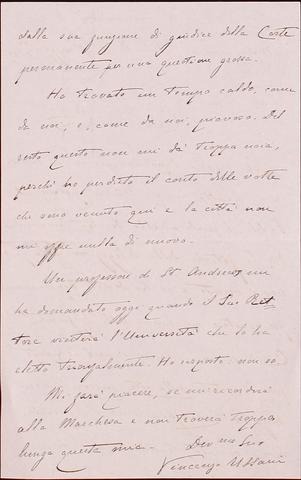 dalla sua funzione di giudice della Corte
permanente per una questione grossa.
Ho trovato un tempo caldo, come
da noi, e, come da noi, piovoso. Del
resto questo non mi dà troppa noia,
perchè ho perduto il conto delle volte
che sono venuto qui e la città non
mi offre nulla di nuovo.
Un professore di St Andrews mi
ha domandato oggi quando il Suo Ret
tore visiterà l'Università che lo ha
eletto trionfalmente. Ho risposto: non so.
Mi farà piacere, se mi ricorderà
alla Marchesa e non troverà troppo
lunga questa mia. Dev mo Suo
Vincenzo Ussani